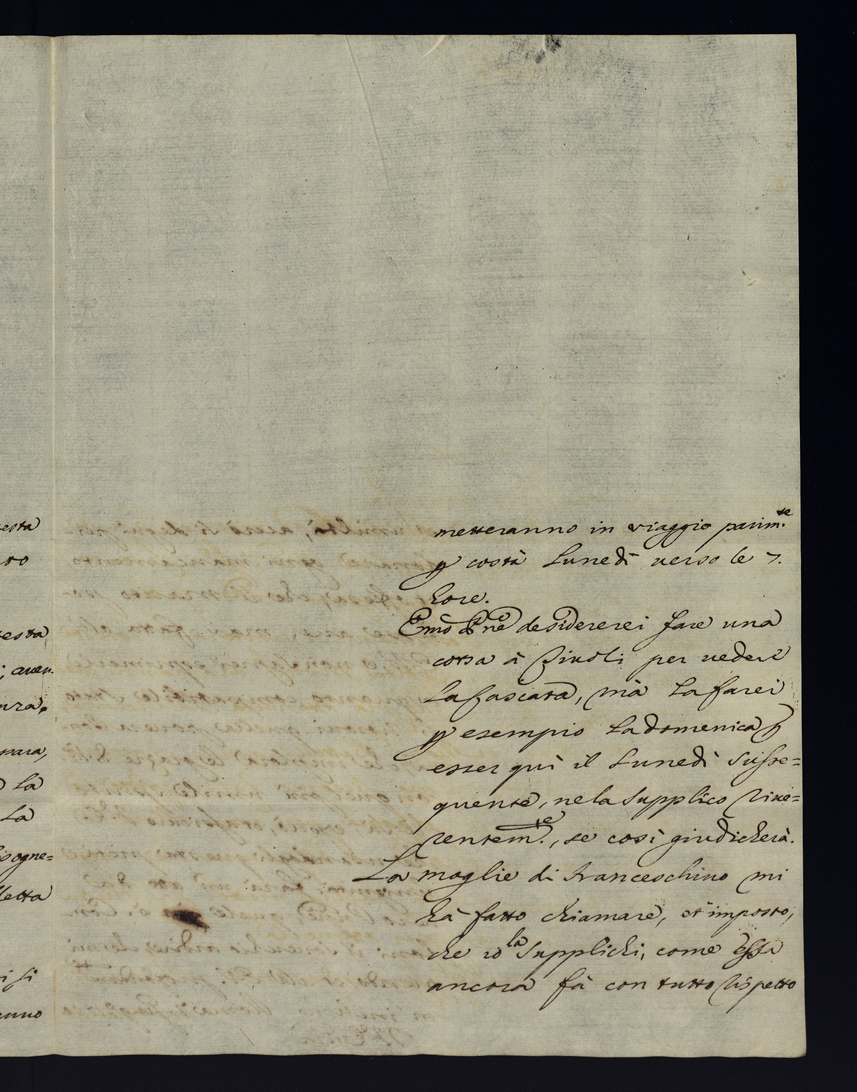 esta
sto
testa
; aven.
nza,
nava,
la
La
isogne=
letta
si si
anno
metteranno in viaggio parim.te
p costà Lunedì verso le 7.
hore.
Emo Pne desidererei fare una
corsa à Tivoli per vedere
La Cascata, mà La farei
p esempio La domenica p
esser quì il Lunedì susse=
quente, ne la Supplico rive=
rentem.te, se così giudicherà.
La moglie di Franceschino mi
hà fatto chiamare, et imposto,
che io la Supplichi, come essa
ancora fà con tutto rispetto